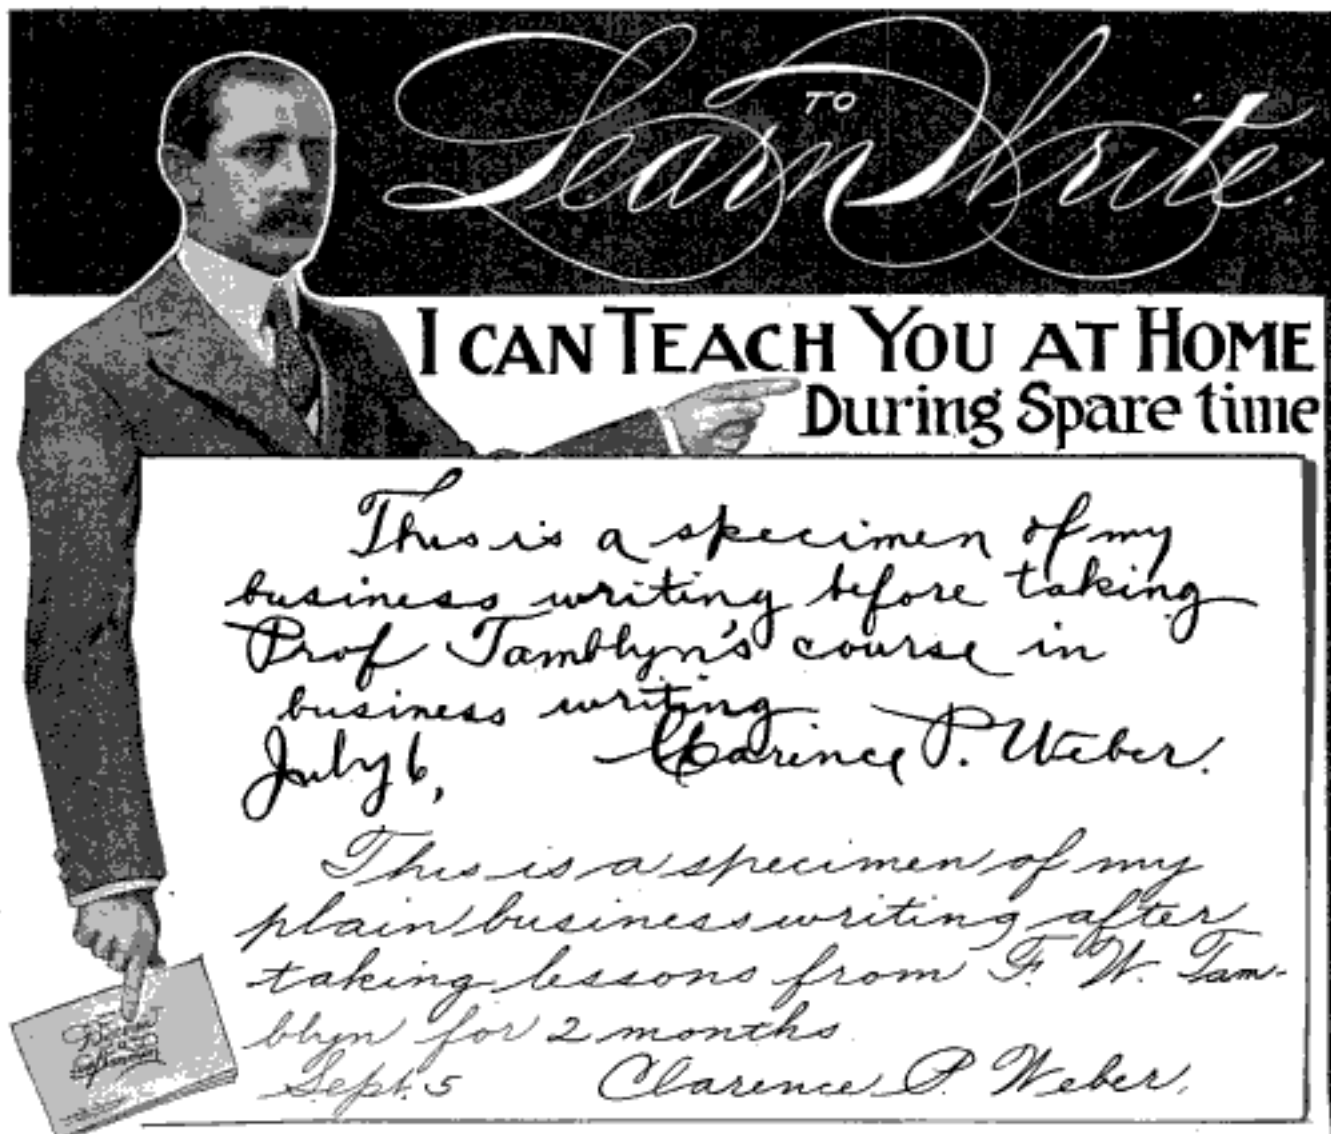 Learn to Write.
I CAN TEACH YOU AT HOME
During Spare time
This is a specimen of my
business writing before taking
Prof Tamblyn's course in
business writing
July 6, Clarence P. Weber.
This is a specimen of my
plain business writing after
taking lessons from F. W. Tam-
blyn for 2 months
Sept. 5 Clarence P. Weber.